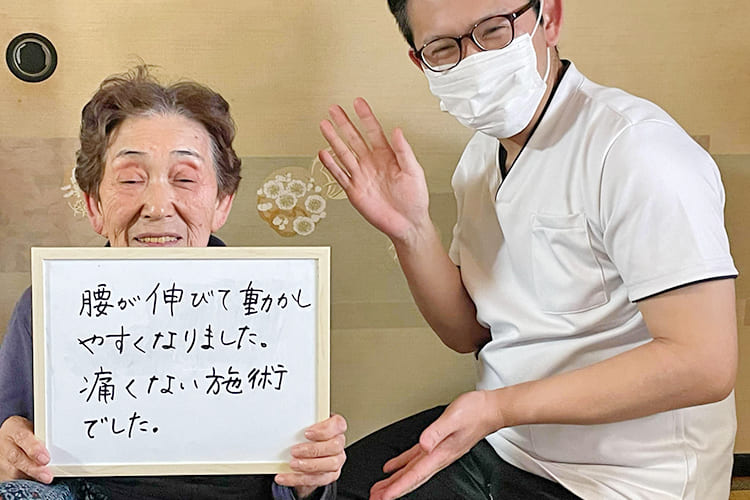 腰が伸びて動かし
やすくなりました。
痛くない施術
でした。